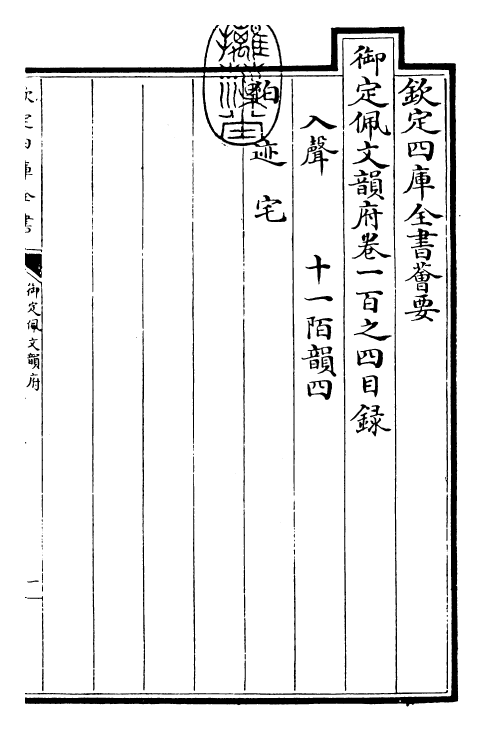 欽定四庫全書薈要
御定佩文韻府卷一百之四目録
入聲　十一陌韻四
迹　宅
欽定四庫全書
御定佩文韻府
一